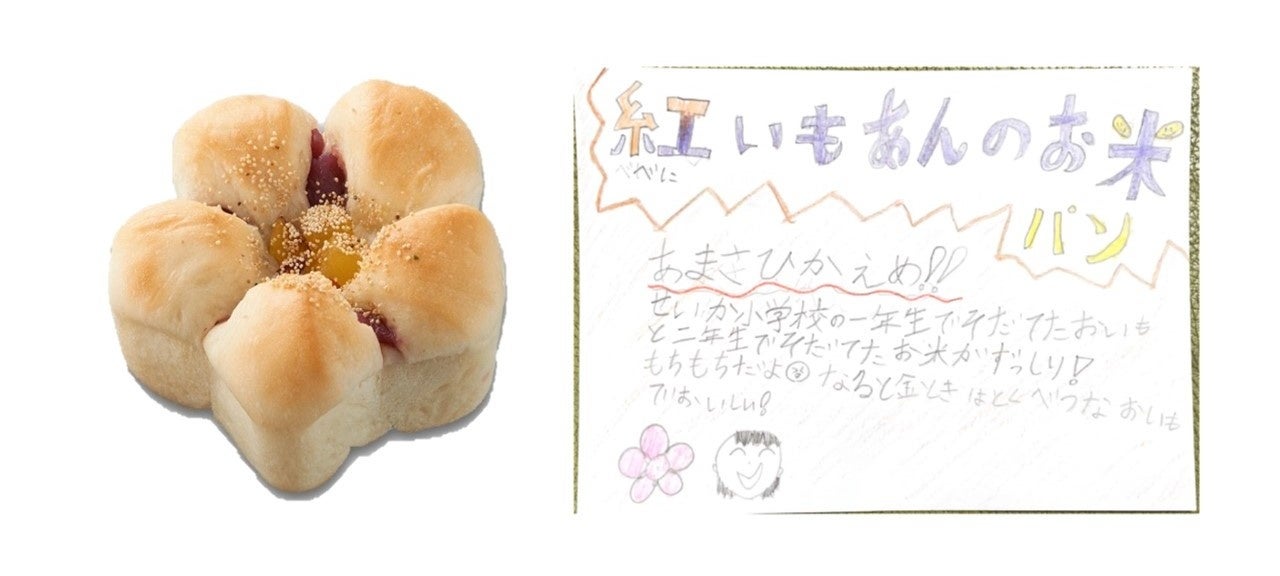 紅いもあんのお米
べに
パン
あまさひかえめ!!
せいか小学校の一年生でそだてたおいも
と二年生でそだてたお米がずっしり!
もちもちだよ なると金ときはとくべつなおいも
でおいしい!